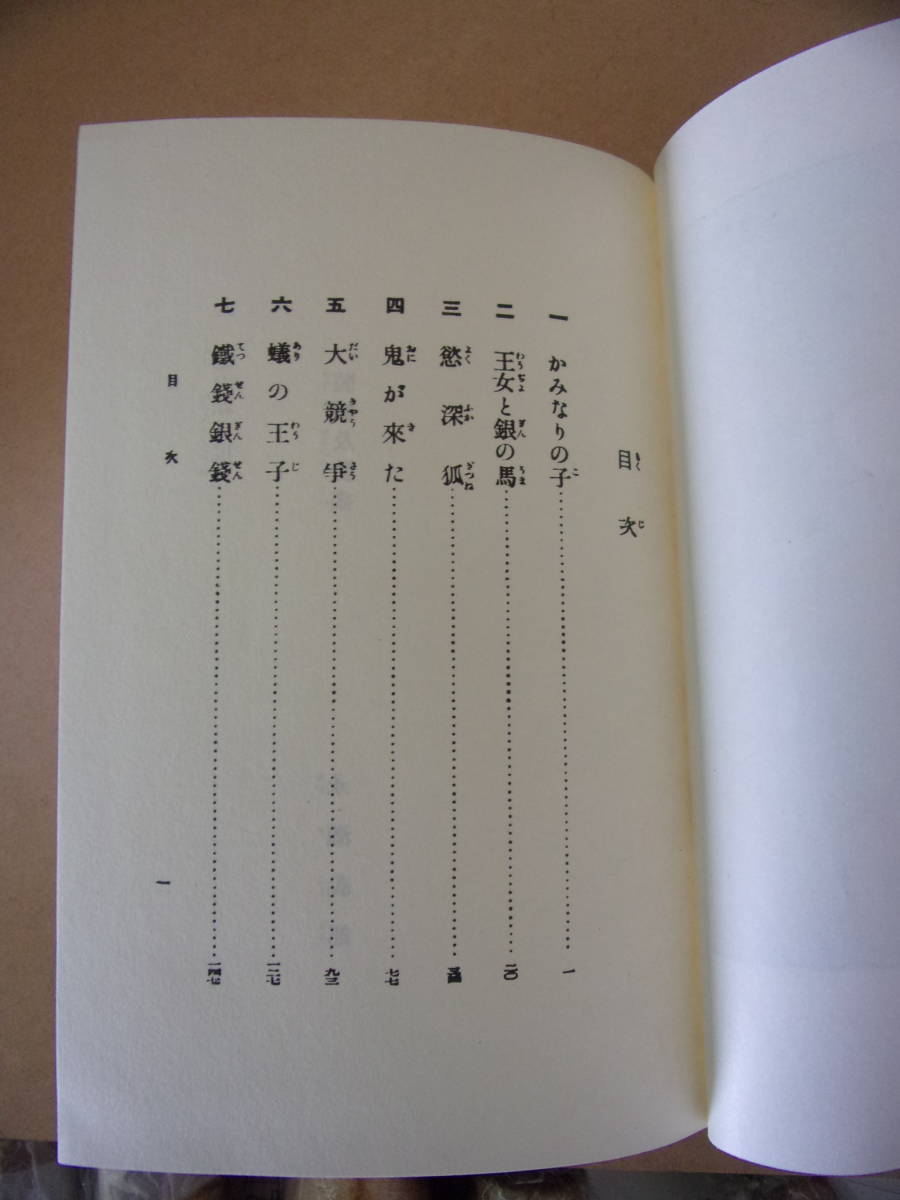 目次
一 かみなりの子……一
二 王女と銀の馬……二〇
三 慾深狐……
四 鬼が來た……七七
五 大競爭……九三
六 蟻の王子……一二七
七 鐵錢銀錢……一四七
目次
一